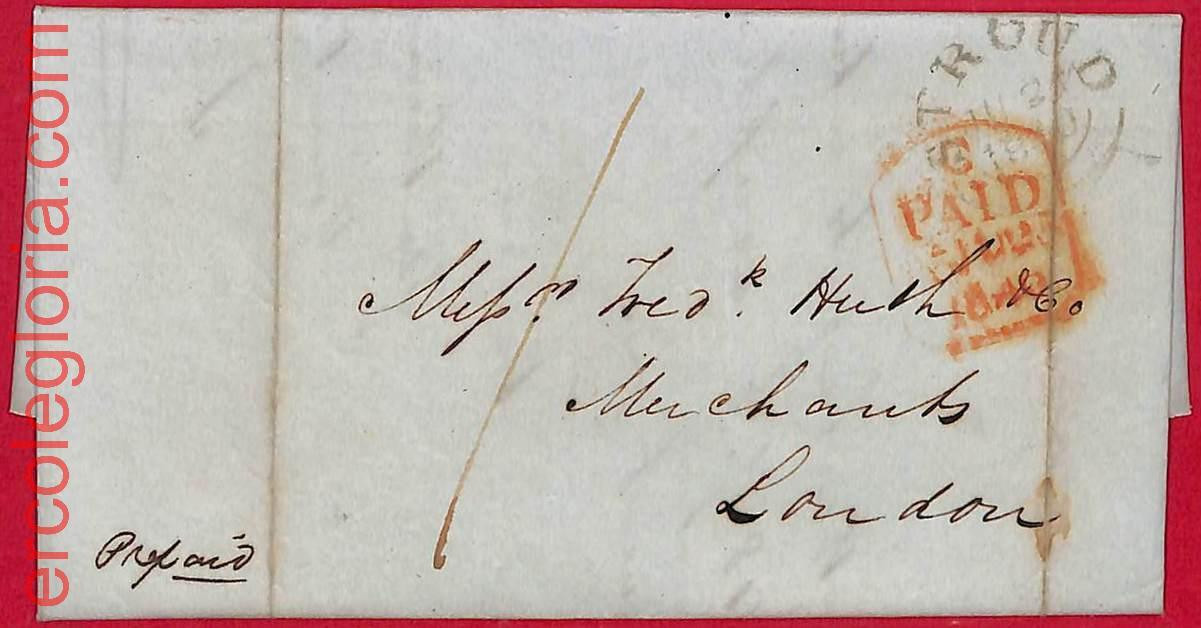 ercolegloria.com
STROUD
C
PAID
Messrs. Fredk. Huth & Co.
Merchants
London
Prepaid